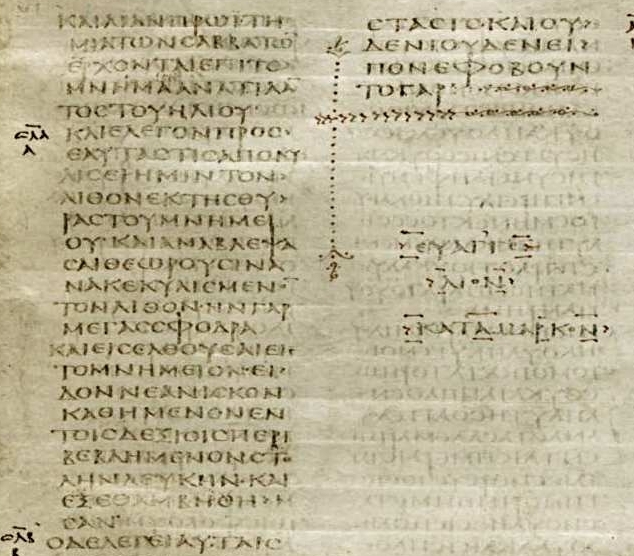 ΚΑΙΛΙΑΝΠΡΩΕΙΤΗ
ΜΙΑΤΩΝϹΑΒΒΑΤΩ̅
ΕΡΧΟΝΤΑΙΕΠΙΤΟ
ΜΝΗΜΑΑΝΑΤΙΛΑ̅
ΤΟϹΤΟΥΗΛΙΟΥ
ϹΛΑ
Α
ΚΑΙΕΛΕΓΟΝΠΡΟϹ
ΕΑΥΤΑϹΤΙϹΑΠΟΚΥ
ΛΙϹΕΙΗΜΙΝΤΟΝ
ΛΙΘΟΝΕΚΤΗϹΘΥ>
ΡΑϹΤΟΥΜΝΗΜΕΙ
ΟΥ·ΚΑΙΑΝΑΒΛΕΨΑ
ϹΑΙΘΕΩΡΟΥϹΙΝΑ
ΝΑΚΕΚΥΛΙϹΜΕΝ
ΤΟΝΛΙΘΟΝ·ΗΝΓΑΡ
ΜΕΓΑϹϹΦΟΔΡΑ
ΚΑΙΕΙϹΕΛΘΟΥϹΑΙΕΙϹ
ΤΟΜΝΗΜΕΙΟΝ·ΕΙ
ΔΟΝΝΕΑΝΙϹΚΟΝ
ΚΑΘΗΜΕΝΟΝΕΝ
ΤΟΙϹΔΕΞΙΟΙϹΠΕΡΙ
ΒΕΒΛΗΜΕΝΟΝϹΤΟ
ΛΗΝΛΕΥΚΗΝ·ΚΑΙ
ΕΞΕΘΑΜΒΗΘΗ>
ϹΑΝ
ϹΛΒ
Β
ΟΔΕΛΕΓΕΙΑΥΤΑΙϹ
ϹΤΑϹΙϹ·ΚΑΙΟΥ>
ΔΕΝΙΟΥΔΕΝΕΙ>
ΠΟΝΕΦΟΒΟΥΝ
ΤΟΓΑΡ:
ΕΥΑΓΓΕ
ΛΙΟΝ
ΚΑΤΑΜΑΡΚΟΝ